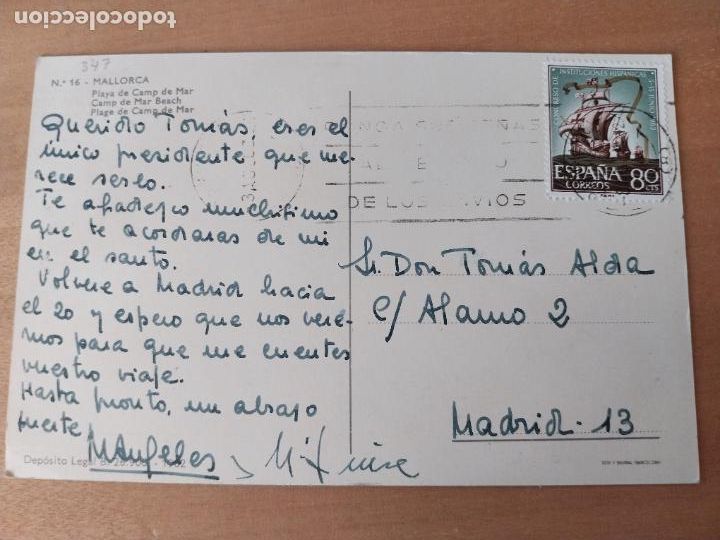 todocoleccion
347
N.º 16 - MALLORCA
Playa de Camp de Mar
Camp de Mar Beach
Plage de Camp de Mar
Querido Tomás, eres el
único presidente que me-
rece serlo.
Te agradezco muchísimo
que te acordaras de mi
en el santo.
Volveré a Madrid hacia
el 20 y espero que nos vere-
mos para que me cuentes
vuestro viaje.
Hasta pronto, un abrazo
fuerte
MAngeles y
Depósito Legal B.
CONGRESO DE INSTITUCIONES HISPANICAS
ESPAÑA
CORREOS
80 CTS
DE LOS
Sr. Don Tomás Alda
C/ Alamo 2
Madrid-13